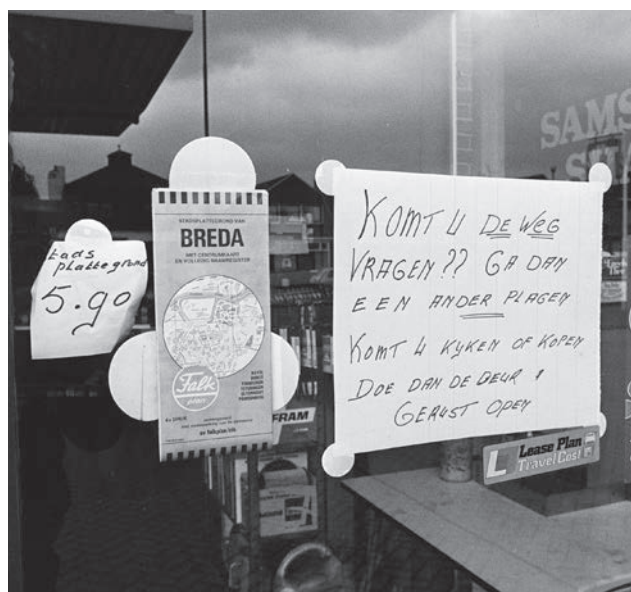 tads
plattegrond
5.90
STADSPLATTEGROND VAN
BREDA
MET CENTRUMKAART
EN VOLLEDIG NAAMREGISTER
Falk
KOMT U DE WEG
VRAGEN?? GA DAN
EEN ANDER PLAGEN
KOMT U KYKEN OF KOPEN
DOE DAN DE DEUR
GERUST OPEN
L Lease Plan
Travel Card
FRAM
SAMS